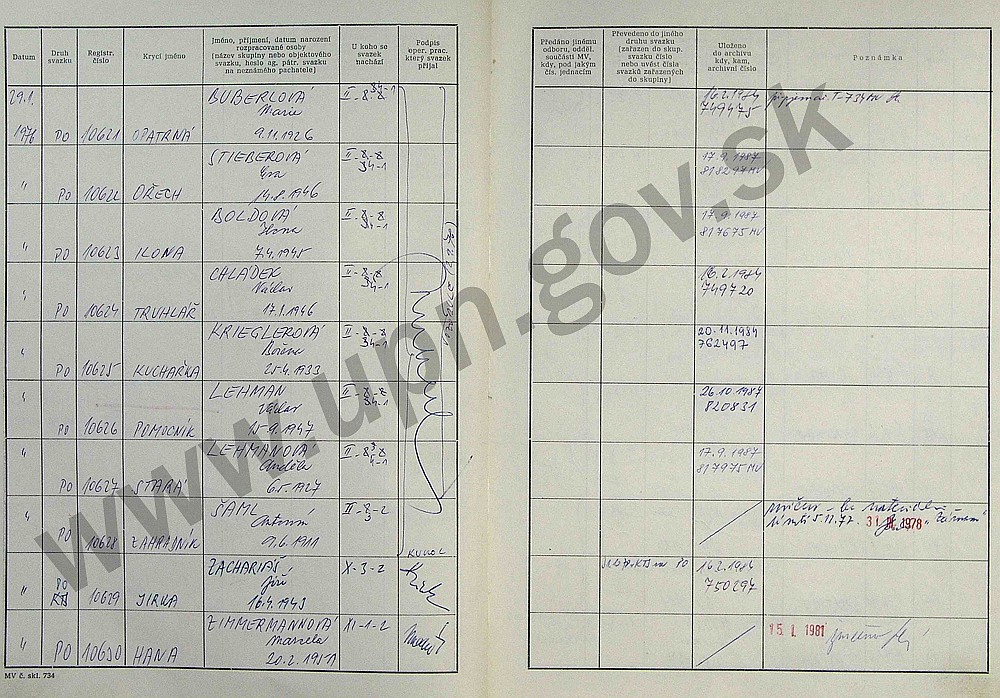 Datum
Druh svazku
Registr. číslo
Krycí jméno
Jméno, příjmení, datum narození
rozpracované osoby
(název skupiny nebo objektového
svazku, heslo ag. pátr. svazku
na neznámého pachatele)
U koho se
svazek
nachází
Podpis
oper. prac.
který svazek
přijal
Předáno jinému
odboru, odděl.
součásti MV,
kdy, pod jakým
čís. jednacím
Převedeno do jiného
druhu svazku
(zařazen do skup.
svazku číslo
nebo uvést čísla
svazků zařazených
do skupiny)
Uloženo
do archivu
kdy, kam,
archivní číslo
Poznámka
29.1. BUBERLOVÁ II-8-8 34-1 16.2.1984
Marie 749475
1976 PO 10621 OPATRNÁ 9.11.1926
STIEBEROVÁ II-8-8 17.9.1987
Eva 34-1 818297 MV
" PO 10622 OŘECH 14.8.1946
BOLDOVÁ II-8-8 17.9.1987
Ilona 34-1 817675 MV
" PO 10623 ILONA 7.4.1945
CALÁDEK II-8-8 16.2.1984
Václav 34-1 749720
" PO 10624 TRUHLÁŘ 17.1.1946
KRIEGLEROVÁ II-8-8 20.11.1984
Božena 34-1 762497
" PO 10625 KUCHAŘKA 25.4.1933
" LEHMAN II-8-8 26.10.1987
Václav 34-1 820831
PO 10626 POMOCNÍK 15.9.1947
" LEHMANOVÁ II-8-8 17.9.1987
Anděla 817975 MV
PO 10627 STARÁ 6.5.1927
" ŠAML II-8-2
Antonín 3 5.11.77. 31 1978
PO 10628 ZAHRADNÍK 9.6.1911
KUKOL
ZACHARIÁŠ X-3-2 PO 16.2.1984
PO Jiří 750297
" KTS 10629 JIRKA 16.4.1943
ZIMMERMANNOVÁ XI-1-2 15. I. 1981
Marcela
" PO 10630 HANA 20.2.1951
MV č. skl. 734
www.upn.gov.sk